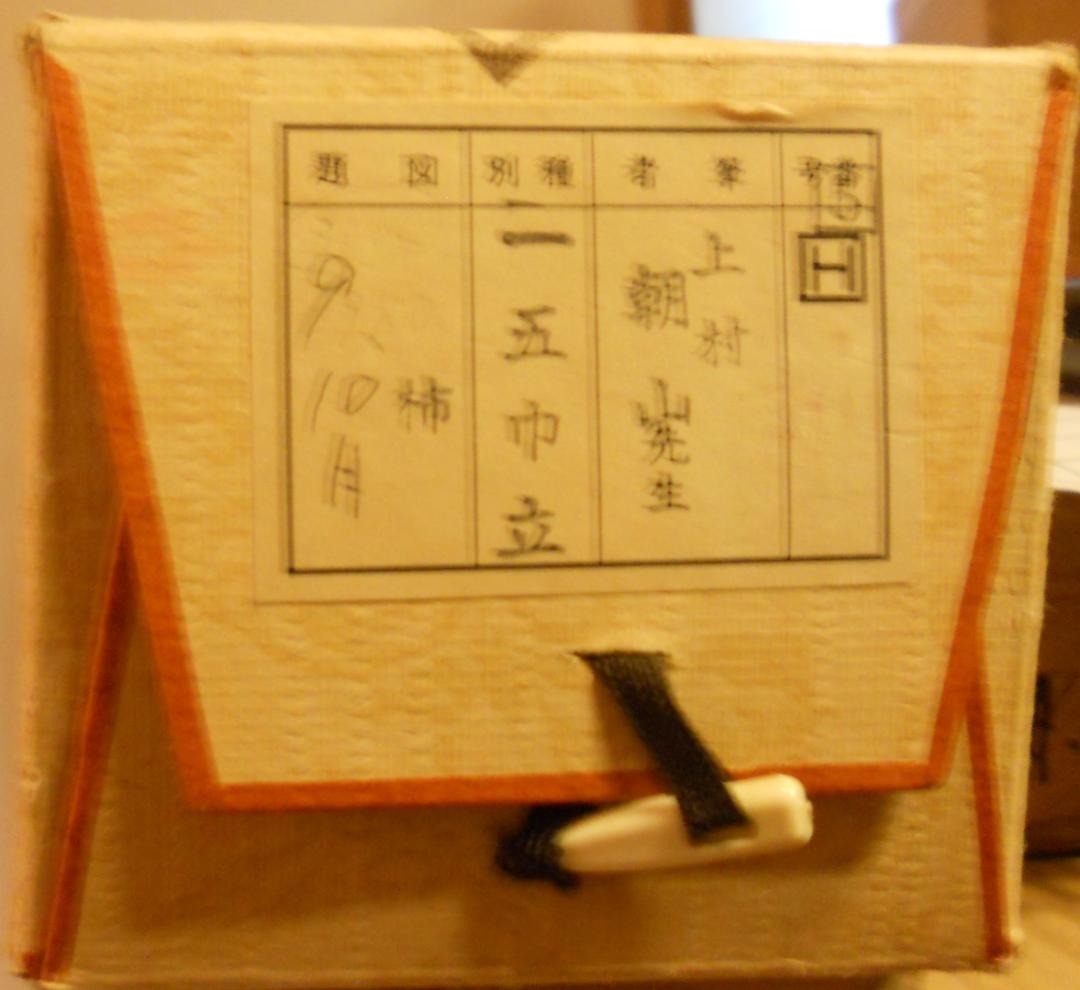 番号
H
筆者
上村
朝山先生
種別
一五巾立
図題
柿
9、10月